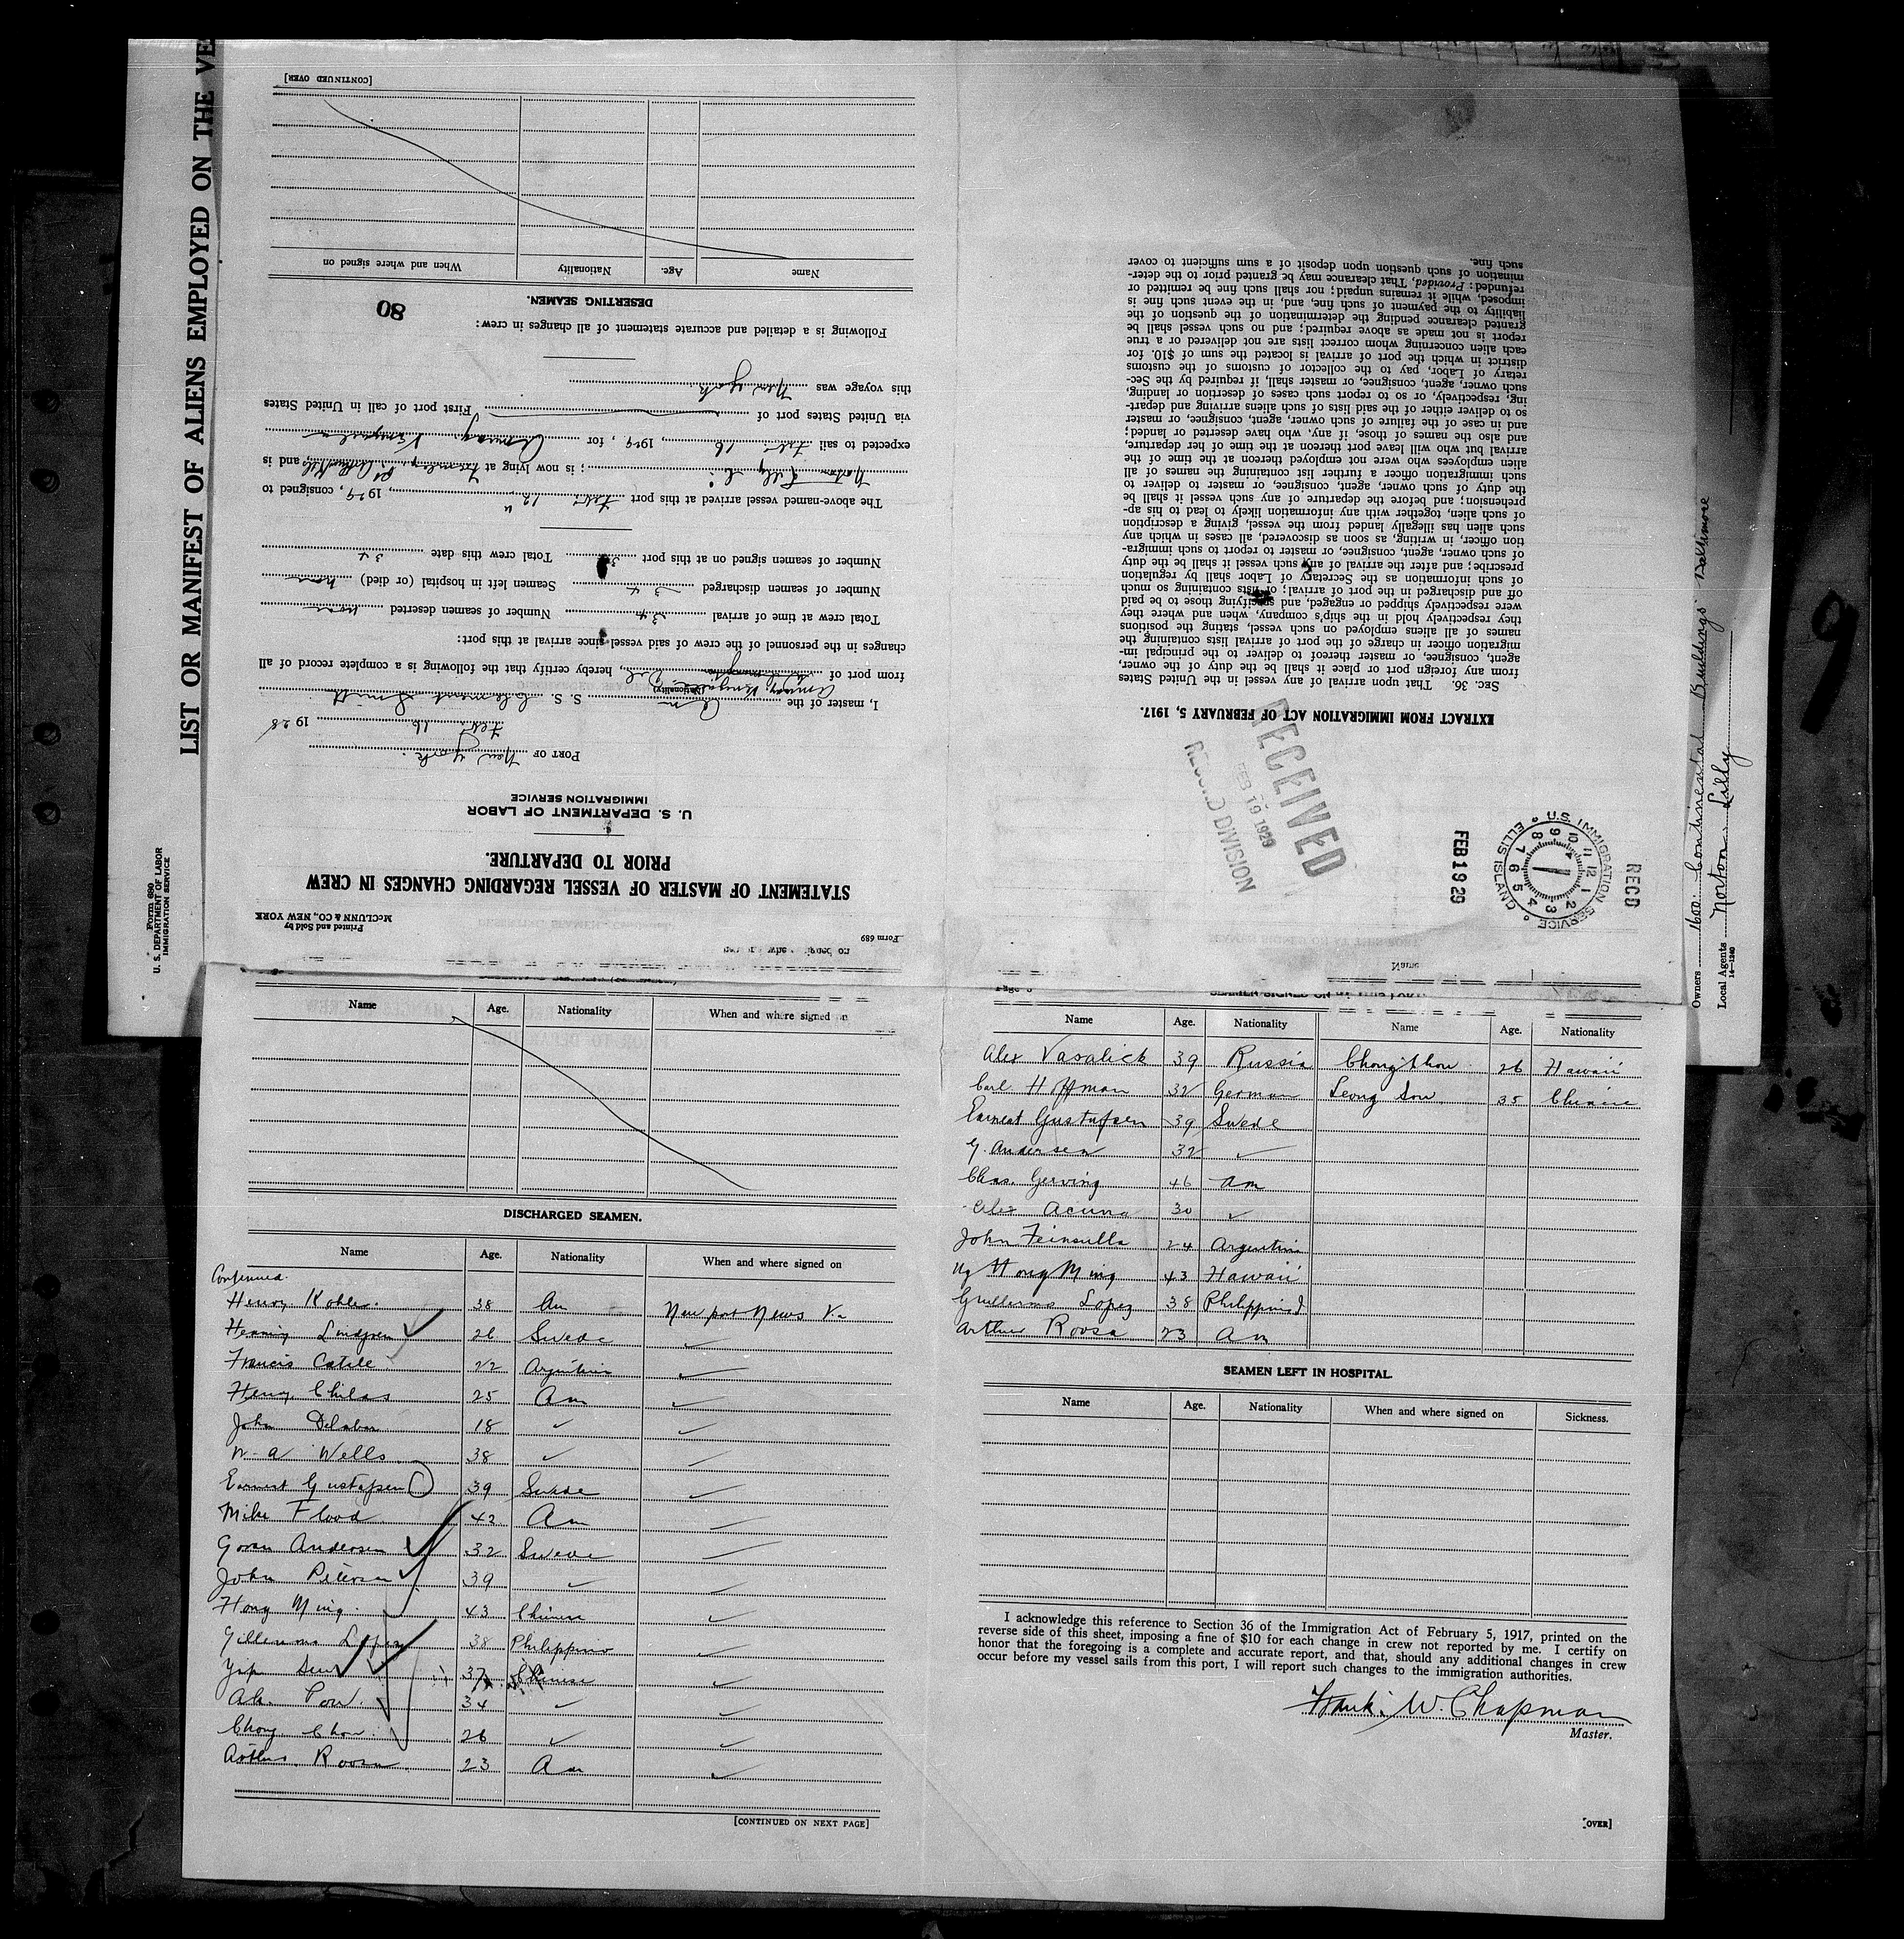 LIST OR MANIFEST OF ALIENS EMPLOYED ON THE VE
Form 680
U. S. DEPARTMENT OF LABOR
IMMIGRATION SERVICE
Form 689
Printed and Sold by
McCLUNN & CO., NEW YORK
STATEMENT OF MASTER OF VESSEL REGARDING CHANGES IN CREW
PRIOR TO DEPARTURE.
U. S. DEPARTMENT OF LABOR
IMMIGRATION SERVICE
PORT OF New York
Feby 16 1928
I, master of the Am (Nationality) S. S. Clement Smith
from port of , hereby certify that the following is a complete record of all
changes in the personnel of the crew of said vessel since arrival at this port:
Total crew at time of arrival 34 Number of seamen deserted none
Number of seamen discharged 34 Seamen left in hospital (or died) none
Number of seamen signed on at this port 34 Total crew this date 34
The above-named vessel arrived at this port Feby 12, 1929, consigned to
Norton Lilly ; is now lying at and is
expected to sail Feb 16, 1929, for
via United States port of First port of call in United States
this voyage was New York
Following is a detailed and accurate statement of all changes in crew:
80
DESERTING SEAMEN.
Name Age. Nationality When and where signed on
[CONTINUED OVER]
EXTRACT FROM IMMIGRATION ACT OF FEBRUARY 5, 1917.
SEC. 36. That upon arrival of any vessel in the United States
from any foreign port or place it shall be the duty of the owner,
agent, consignee, or master thereof to deliver to the principal im-
migration officer in charge of the port of arrival lists containing the
names of all aliens employed on such vessel, stating the positions
they respectively hold in the ship's company, when and where they
were respectively shipped or engaged, and specifying those to be paid
off and discharged in the port of arrival; or lists containing so much
of such information as the Secretary of Labor shall by regulation
prescribe; and after the arrival of any such vessel it shall be the duty
of such owner, agent, consignee, or master to report to such immigra-
tion officer, in writing, as soon as discovered, all cases in which any
such alien has illegally landed from the vessel, giving a description
of such alien, together with any information likely to lead to his ap-
prehension; and before the departure of any such vessel it shall be
the duty of such owner, agent, consignee, or master to deliver to
such immigration officer a further list containing the names of all
alien employees who were not employed thereon at the time of the
arrival but who will leave port thereon at the time of her departure,
and also the names of those, if any, who have deserted or landed;
and in case of the failure of such owner, agent, consignee, or master
so to deliver either of the said lists of such aliens arriving and depart-
ing, respectively, or so to report such cases of desertion or landing,
such owner, agent, consignee, or master shall, if required by the Sec-
retary of Labor, pay to the collector of customs of the customs
district in which the port of arrival is located the sum of $10. for
each alien concerning whom correct lists are not delivered or a true
report is not made as above required; and no such vessel shall be
granted clearance pending the determination of the question of the
liability to the payment of such fine, and, in the event such fine is
imposed, while it remains unpaid; nor shall such fine be remitted or
refunded: Provided, That clearance may be granted prior to the deter-
mination of such question upon deposit of a sum sufficient to cover
such fine.
RECEIVED
FEB 19 1929
RECORD DIVISION
RECD
U.S. IMMIGRATION SERVICE
ELLIS ISLAND
12 1 2 3 4 5 6 7 8 9 10 11
FEB 19 29
Owners 1600 Continental Buildings Baltimore
Local Agents Norton Lilly
14—1240
9
Name Age. Nationality When and where signed on
DISCHARGED SEAMEN.
Name Age. Nationality When and where signed on
Continued.
Henry Kohler 38 Am Newport News Va
Henning Lindgren 26 Swede ✓
Francis Catele 22 Argentina ✓
Henry Chilas 25 Am ✓
John Delabar 18 ✓ ✓
W. A Wells 38 ✓ ✓
Earnest Gustafsen 39 Swede ✓
Mike Flood 42 Am ✓
Goran Andersen 32 Swede ✓
John Peterson 39 ✓ ✓
Hong Ming 43 Chinese ✓
Gillermo Lopez 38 Philippino ✓
Yip Sew 37 Chinese ✓
Ah. Pow. 34 ✓ ✓
Chong Chow 26 ✓ ✓
Arthur Roosa 23 Am ✓
[CONTINUED ON NEXT PAGE]
Name Age. Nationality Name Age. Nationality
Alex Vasalick 39 Russia Chong Chow 26 Hawaii
Carl Hoffman 32 German Leong Sow 35 Chinese
Earnest Gustafsen 39 Swede
G. Andersen 32 ✓
Chas. Gerving 46 Am
Alex Acuna 30 ✓
John Feinsulla 24 Argentina
Ng Hong Ming 43 Hawaii
Guillermo Lopez 38 Philippine I.
Arthur Roosa 23 Am
SEAMEN LEFT IN HOSPITAL.
Name Age. Nationality When and where signed on Sickness.
I acknowledge this reference to Section 36 of the Immigration Act of February 5, 1917, printed on the
reverse side of this sheet, imposing a fine of $10 for each change in crew not reported by me. I certify on
honor that the foregoing is a complete and accurate report, and that, should any additional changes in crew
occur before my vessel sails from this port, I will report such changes to the immigration authorities.
Frank. W. Chapman
Master.
[OVER]